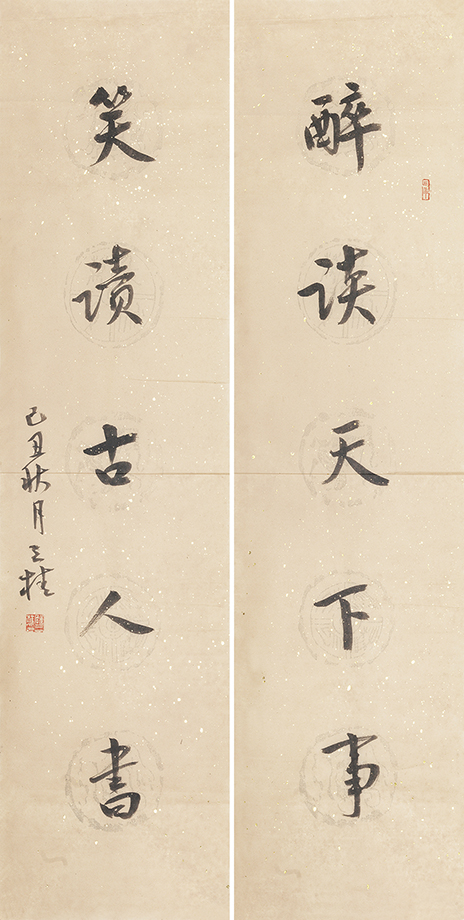 醉談天下事
笑讀古人書
己丑秋月